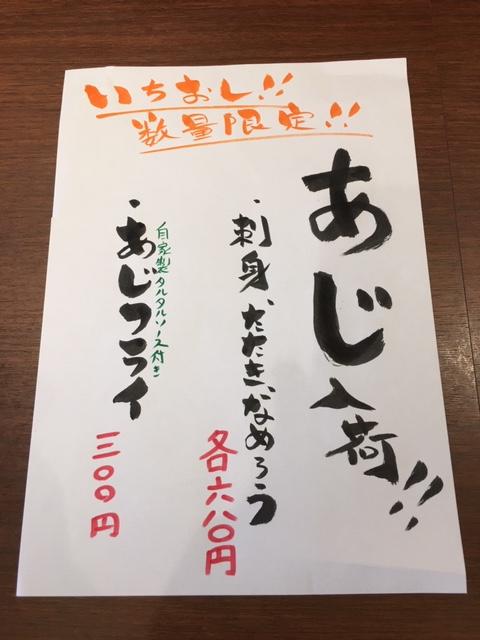 いちおし!!
数量限定!!
あじ入荷!!
・刺身、たたき、なめろう
各六八〇円
・あじフライ
自家製タルタルソース付き
三〇〇円